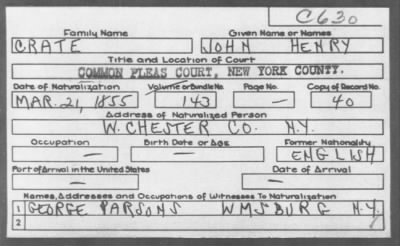 C630
Family Name Given Name or Names
CRATE JOHN HENRY
Title and Location of Court
COMMON PLEAS COURT, NEW YORK COUNTY.
Date of Naturalization Volume or Bundle No. Page No. Copy of Record No.
MAR. 21, 1855 143 — 40
Address of Naturalized Person
W. CHESTER CO. N.Y.
Occupation Birth Date or Age Former Nationality
— — ENGLISH
Port of Arrival in the United States Date of Arrival
— —
Names, Addresses and Occupations of Witnesses To Naturalization
1 GEORGE PARSONS WMSBURG N.Y.
2